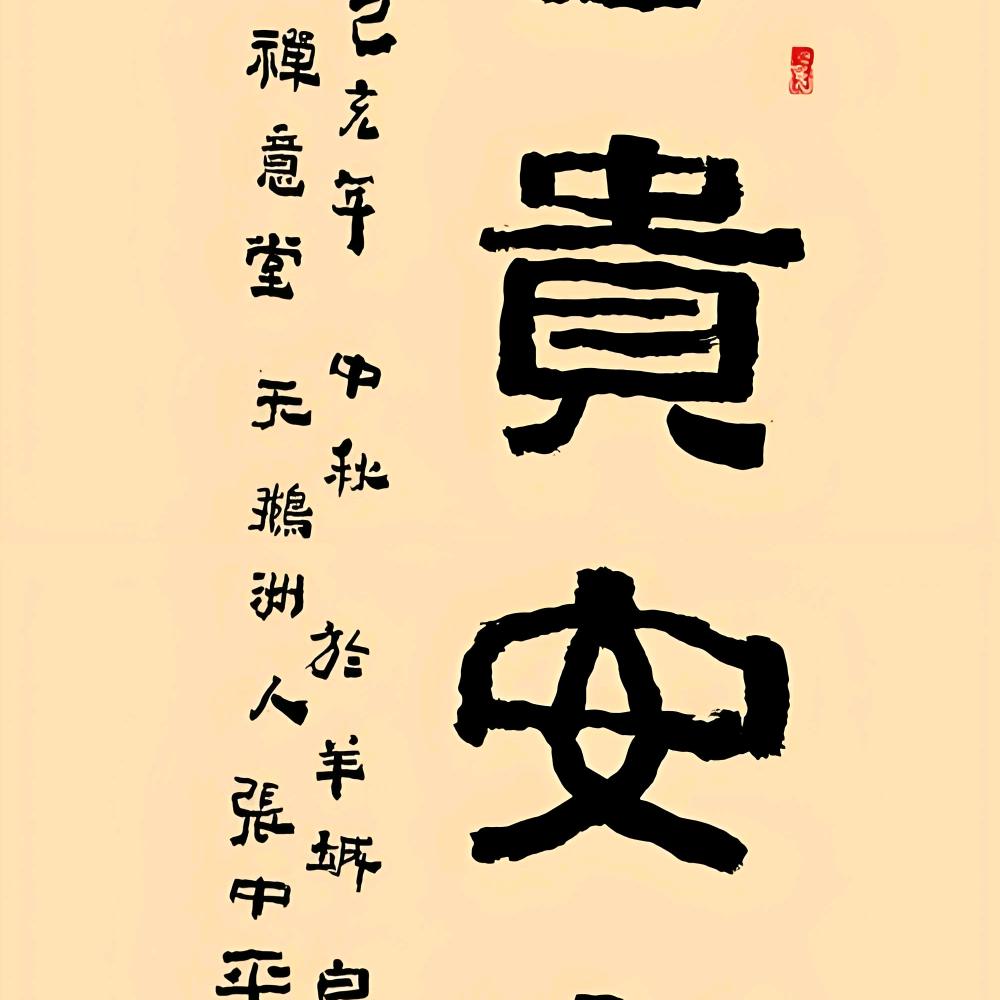 貴安
己亥年 中秋 於羊城 白
禪意堂 天鵝洲人 張中平